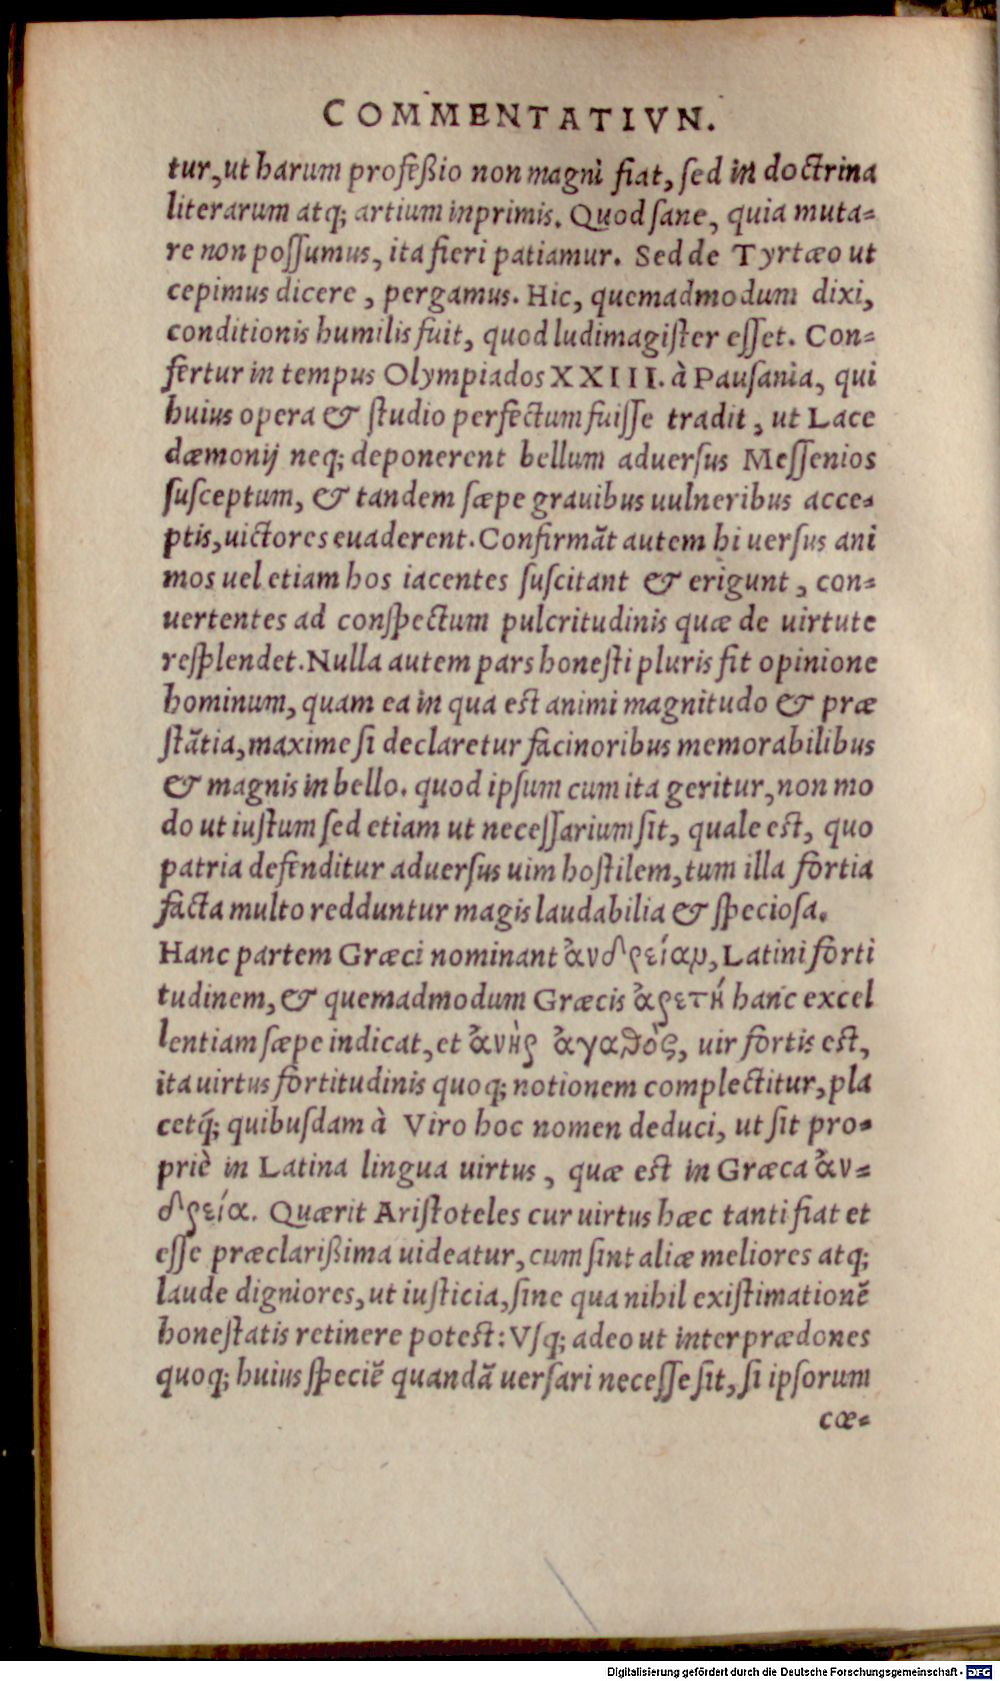 COMMENTATIVN.
tur, ut harum profeßio non magni fiat, sed in doctrina
literarum atq; artium inprimis. Quod sane, quia muta=
re non possumus, ita fieri patiamur. Sed de Tyrtæo ut
cepimus dicere, pergamus. Hic, quemadmodum dixi,
conditionis humilis fuit, quod ludimagister esset. Con=
fertur in tempus Olympiados XXIII. à Pausania, qui
huius opera & studio perfectum fuisse tradit, ut Lace
dæmonij neq; deponerent bellum aduersus Messenios
susceptum, & tandem sæpe grauibus uulneribus acce=
ptis, uictores euaderent. Confirmãt autem hi uersus ani
mos uel etiam hos iacentes suscitant & erigunt, con=
uertentes ad conspectum pulcritudinis quæ de uirtute
resplendet. Nulla autem pars honesti pluris fit opinione
hominum, quam ea in qua est animi magnitudo & præ
stãtia, maxime si declaretur facinoribus memorabilibus
& magnis in bello. quod ipsum cum ita geritur, non mo
do ut iustum sed etiam ut necessarium sit, quale est, quo
patria defenditur aduersus uim hostilem, tum illa fortia
facta multo redduntur magis laudabilia & speciosa.
Hanc partem Græci nominant ἀνδρείαν, Latini forti
tudinem, & quemadmodum Græcis ἀρετή hanc excel
lentiam sæpe indicat, et ἀνὴρ ἀγαθὸς, uir fortis est,
ita uirtus fortitudinis quoq; notionem complectitur, pla
cetq́; quibusdam à Viro hoc nomen deduci, ut sit pro=
priè in Latina lingua uirtus, quæ est in Græca ἀν=
δρεία. Quærit Aristoteles cur uirtus hæc tanti fiat et
esse præclarißima uideatur, cum sint aliæ meliores atq;
laude digniores, ut iusticia, sine qua nihil existimationẽ
honestatis retinere potest: Vsq; adeo ut inter prædones
quoq; huius speciẽ quandã uersari necesse sit, si ipsorum
cœ=
Digitalisierung gefördert durch die Deutsche Forschungsgemeinschaft - DFG